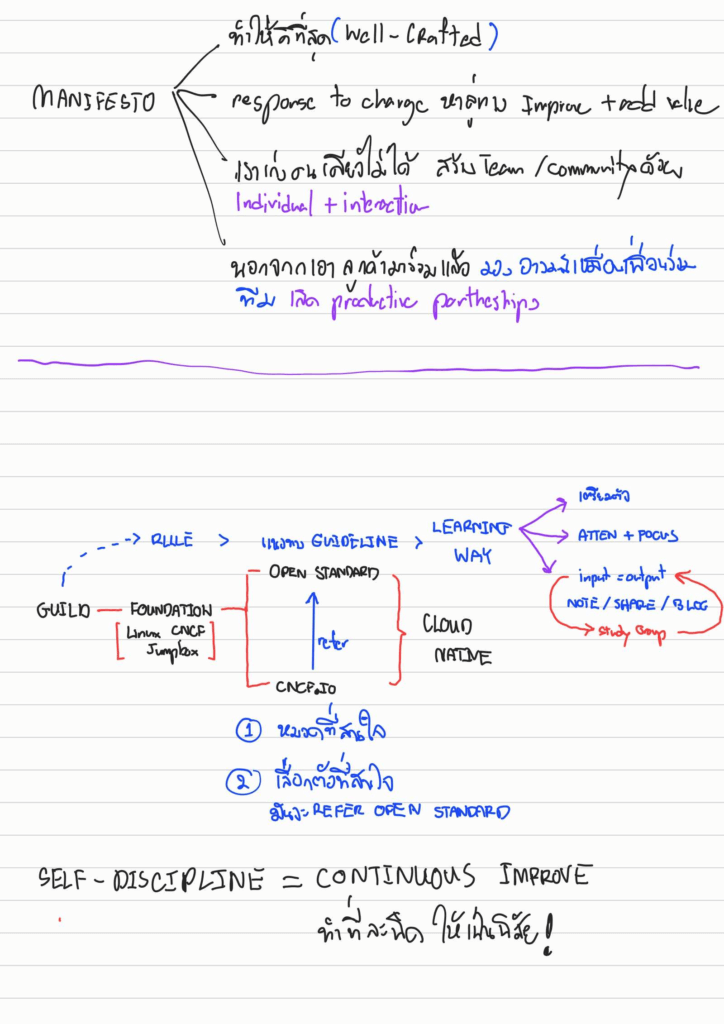 ทำให้ดีที่สุด (Well-Crafted)
MANIFESTO
response to change หาลู่ทาง Improve + add value
เราเก่งคนเดียวไม่ได้ สร้าง Team / community ด้วย
Individual + interaction
นอกจากเอาลูกค้ามาร่วมแล้ว มอง เหมือนเพื่อนร่วม
ทีม เกิด productive partherships
เตรียมตัว
RULE > แนวทาง GUIDELINE > LEARNING WAY
ATTEN + FOCUS
input = output
NOTE / SHARE / BLOG
study Group
OPEN STANDARD
GUILD — FOUNDATION
[Linux CNCF
Jumpbox]
refer
CLOUD
NATIVE
CNCF.IO
① หมวดที่สนใจ
② เลือกตัวที่สนใจ
มันจะ REFER OPEN STANDARD
SELF-DISCIPLINE = CONTINUOUS IMPROVE
ทำทีละนิด ให้เป็นนิสัย!